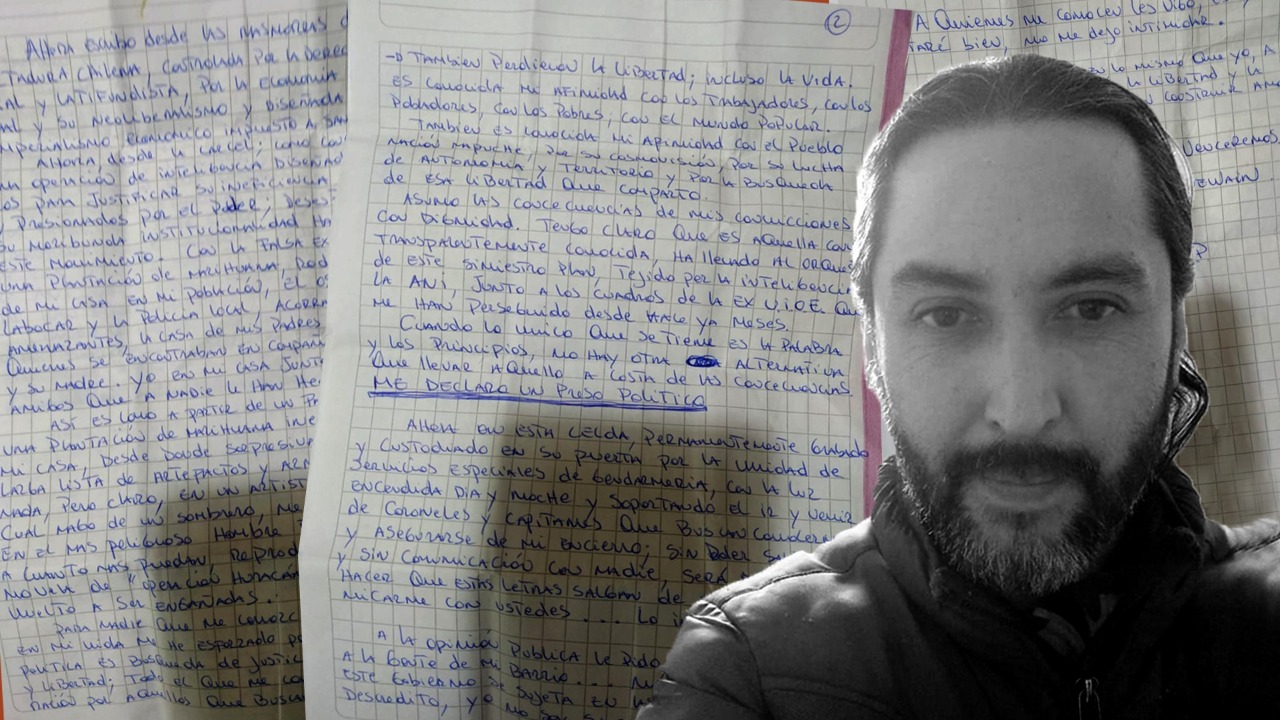 Ahora escribo desde las masmorras d
tadura chilena, controlada por la derec
al y latifundista, por la economia
al y su neoliberalismo y diseñada
mperialismo economico impuesto a san
Ahora, desde la carcel; como con
na operación de inteligencia diseñad
os para justificar su ineficiencia
Presionados por el poder; deses
su moribunda institucionalidad
este movimiento. Con la falsa ex
una plantación de marihuana, rod
de mi casa en mi población, el os
Labocar y la policia local, acorra
amenazantes, la casa de mis padres
quienes se encontraban en compañ
y su madre. Yo en mi casa junto
amigos que a nadie le han he
Así es como a partir de un
una plantación de marihuana ine
mi casa, desde donde sorpresiva
larga lista de artefactos y arm
nada, pero claro, en un artist
cual mago de un sombrero, me
en el mas peligroso hombre
a cuanto mas puedan, reprod
nueva de "operación Huracán
vuelto a ser engañadas.
Para nadie que me conozc
en mi vida me he esforzado po
politica es busqueda de justic
y libertad; todo el que me co
nación por aquellos que busca
2
→ También perdieron la libertad; incluso la vida.
Es conocida mi afinidad con los trabajadores, con los
pobladores, con los pobres, con el mundo popular.
También es conocida mi afinidad con el pueblo
nación mapuche, por su cosmovisión, por su lucha
de autonomia y territorio y por la busqueda
de esa libertad que comparto.
Asumo las concecuencias de mis convicciones
con dignidad. Tengo claro que es aquella con
transparentemente conocida, ha llevado al orque
de este siniestro plan, tejido por la inteligencia
la ANI, junto a los cuadros de la ex U.I.O.E. que
me han perseguido desde hace ya meses.
Cuando lo unico que se tiene es la palabra
y los principios, no hay otra alternativa
que llevar aquello a costa de las concecuencias.
ME DECLARO UN PRESO POLITICO
Ahora en esta celda, permanentemente grabado
y custodiado en su puerta por la unidad de
servicios especiales de gendarmeria, con la luz
encendida dia y noche y soportando el ir y venir
de coroneles y capitanes que buscan
y asegurarse de mi encierro; sin poder
y sin comunicación con nadie, será
hacer que estas letras salgan de
nicarme con ustedes ....
A la opinión publica le pido
a la gente de mi barrio ....
este gobierno se sujeta en
descredito, yo no
A quienes me conocen les digo,
taré bien, no me dejo intimidar.
lo mismo que yo, a
la libertad y la
construir
Venceremos